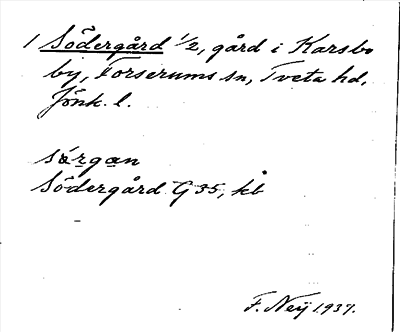 1 Södergård 1/2, gård i Karsbo
by, Forserums sn, Tveta hd,
Jönk. l.
sǫ́rgan
Södergård G 35, kb
F. Neij 1937.